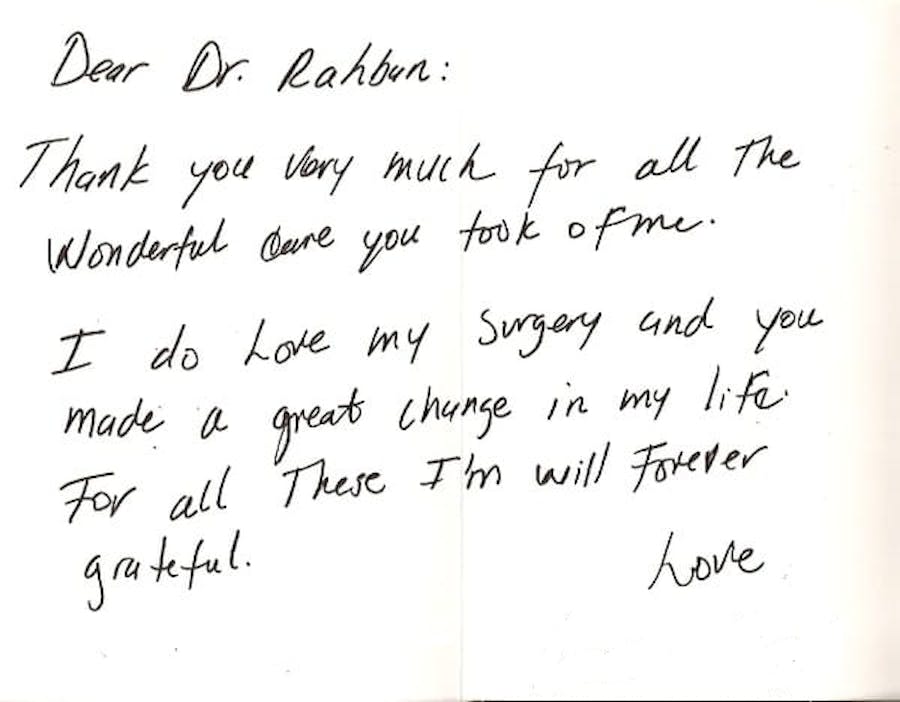 Dear Dr. Rahban:
Thank you very much for all The
Wonderful care you took of me.
I do Love my Surgery and you
made a great change in my life.
For all These I'm will Forever
grateful.
Love